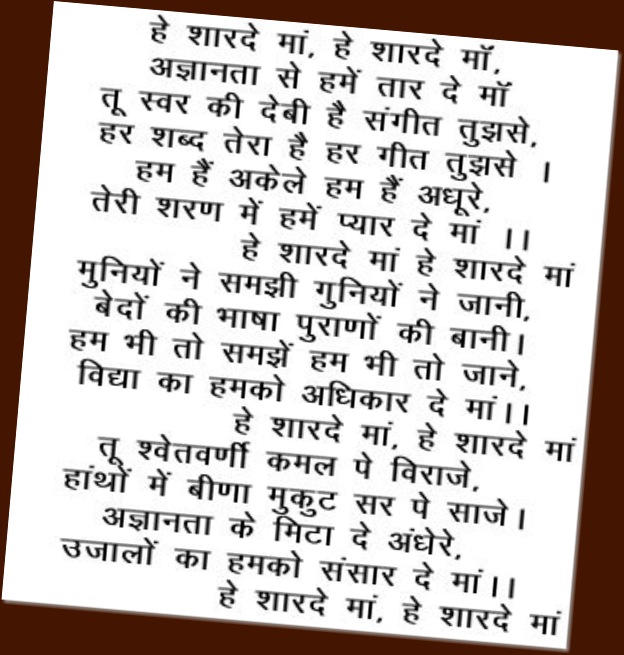 हे शारदे मां, हे शारदे मॉ,
अज्ञानता से हमें तार दे मॉ
तू स्वर की देबी है संगीत तुझसे,
हर शब्द तेरा है हर गीत तुझसे ।
हम हैं अकेले हम हैं अधूरे,
तेरी शरण में हमें प्यार दे मां ।।
हे शारदे मां हे शारदे मां
मुनियों ने समझी गुनियों ने जानी,
बेदों की भाषा पुराणों की बानी।
हम भी तो समझें हम भी तो जाने,
विद्या का हमको अधिकार दे मां।।
हे शारदे मां, हे शारदे मां
तू श्वेतवर्णी कमल पे विराजे,
हांथों में बीणा मुकुट सर पे साजे।
अज्ञानता के मिटा दे अंधेरे,
उजालों का हमको संसार दे मां।।
हे शारदे मां, हे शारदे मां